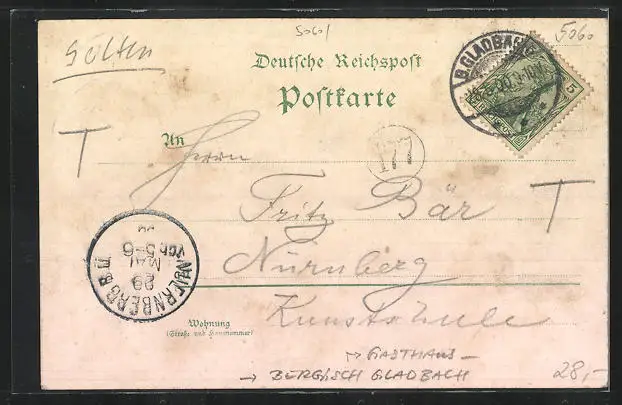 5060
5060
Deutsche Reichspost
Postkarte
B. GLADBACH
5
T
An
Herrn
177
Fritz Bär
T
Nürnberg
Kunstschule
NUERNBERG II
29
MAI
5-6
Wohnung
(Straße und Hausnummer)
→ GASTHAUS –
→ BERGISCH GLADBACH
28,-